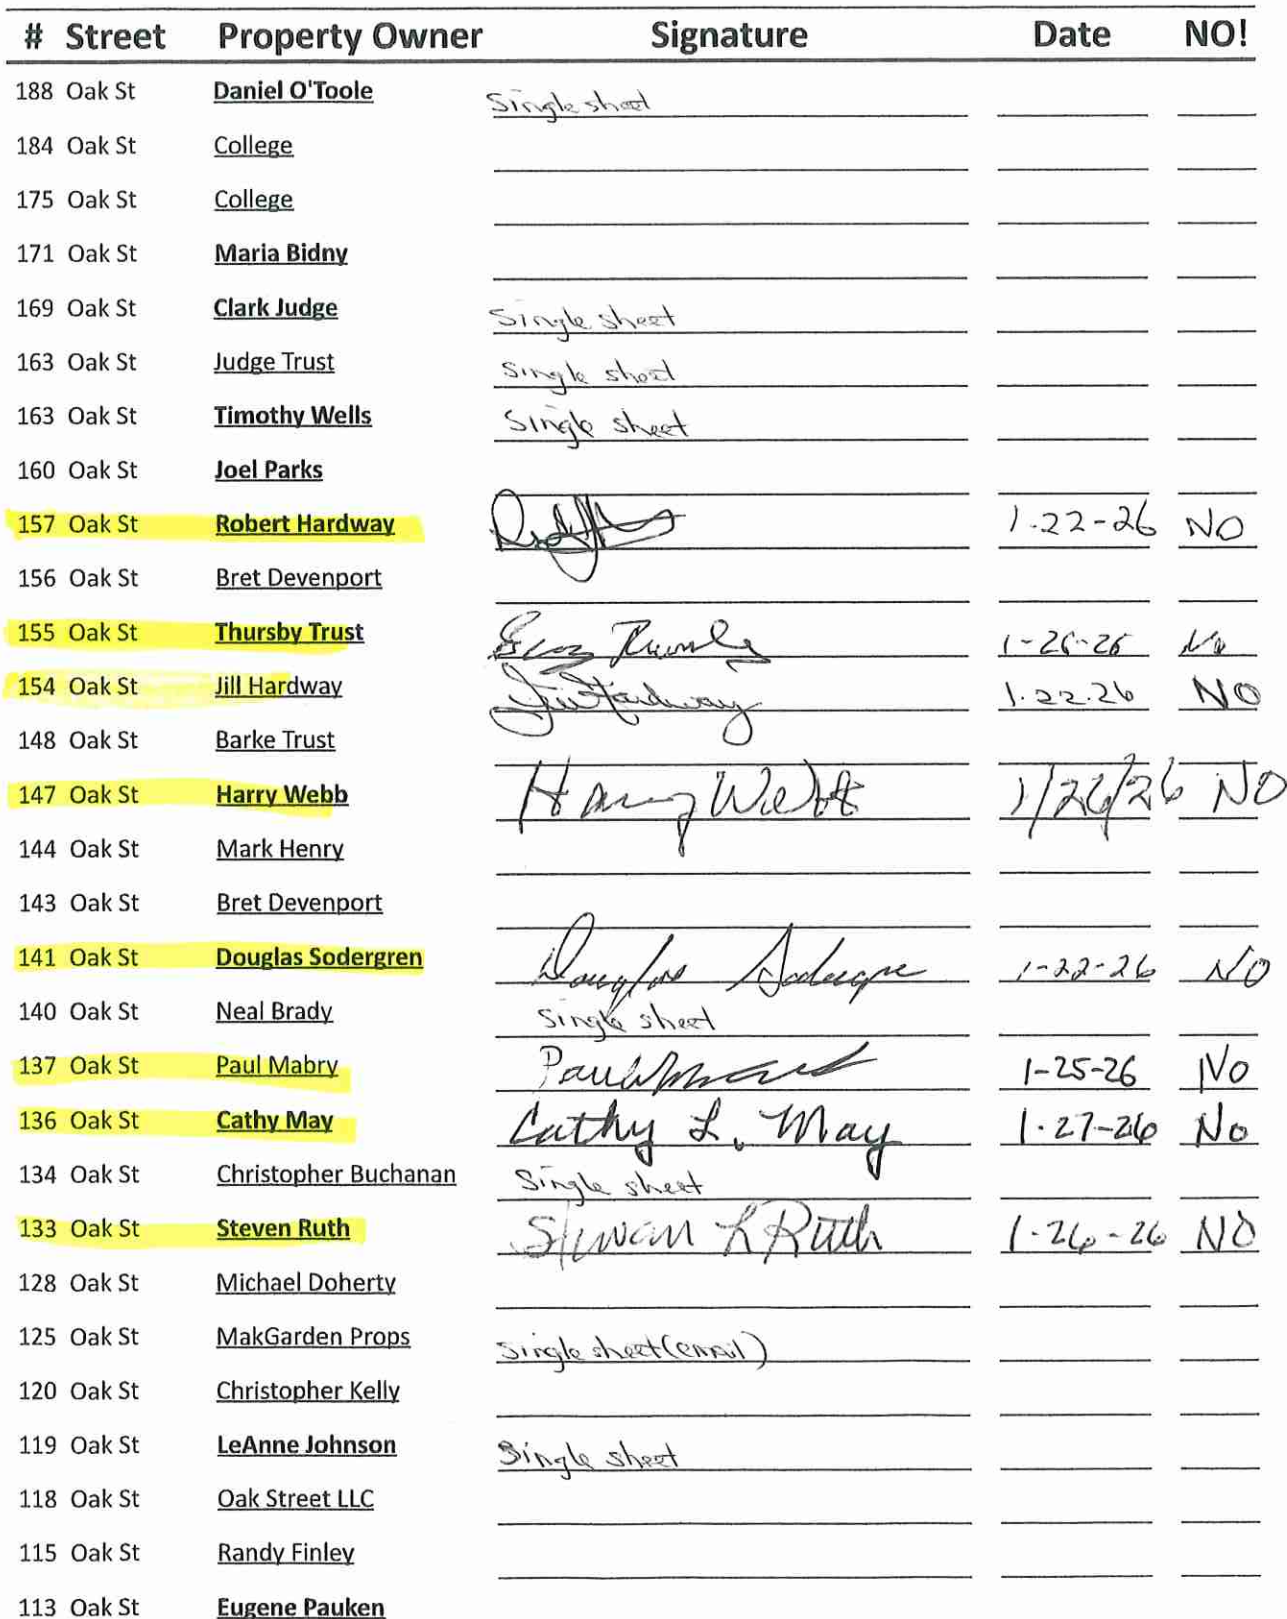 # Street Property Owner Signature Date NO!
188 Oak St Daniel O'Toole Single sheet
184 Oak St College
175 Oak St College
171 Oak St Maria Bidny
169 Oak St Clark Judge Single sheet
163 Oak St Judge Trust Single sheet
163 Oak St Timothy Wells Single sheet
160 Oak St Joel Parks
157 Oak St Robert Hardway 1-22-26 NO
156 Oak St Bret Devenport
155 Oak St Thursby Trust No
154 Oak St Jill Hardway Jill Hardway 1.22.26 NO
148 Oak St Barke Trust
147 Oak St Harry Webb Harry Webb 1/26/26 NO
144 Oak St Mark Henry
143 Oak St Bret Devenport
141 Oak St Douglas Sodergren Douglas Sodergren 1-22-26 NO
140 Oak St Neal Brady Single sheet
137 Oak St Paul Mabry Paul 1-25-26 No
136 Oak St Cathy May Cathy L. May 1-27-26 No
134 Oak St Christopher Buchanan Single sheet
133 Oak St Steven Ruth L Ruth 1-26-26 NO
128 Oak St Michael Doherty
125 Oak St MakGarden Props Single sheet (email)
120 Oak St Christopher Kelly
119 Oak St LeAnne Johnson Single sheet
118 Oak St Oak Street LLC
115 Oak St Randy Finley
113 Oak St Eugene Pauken